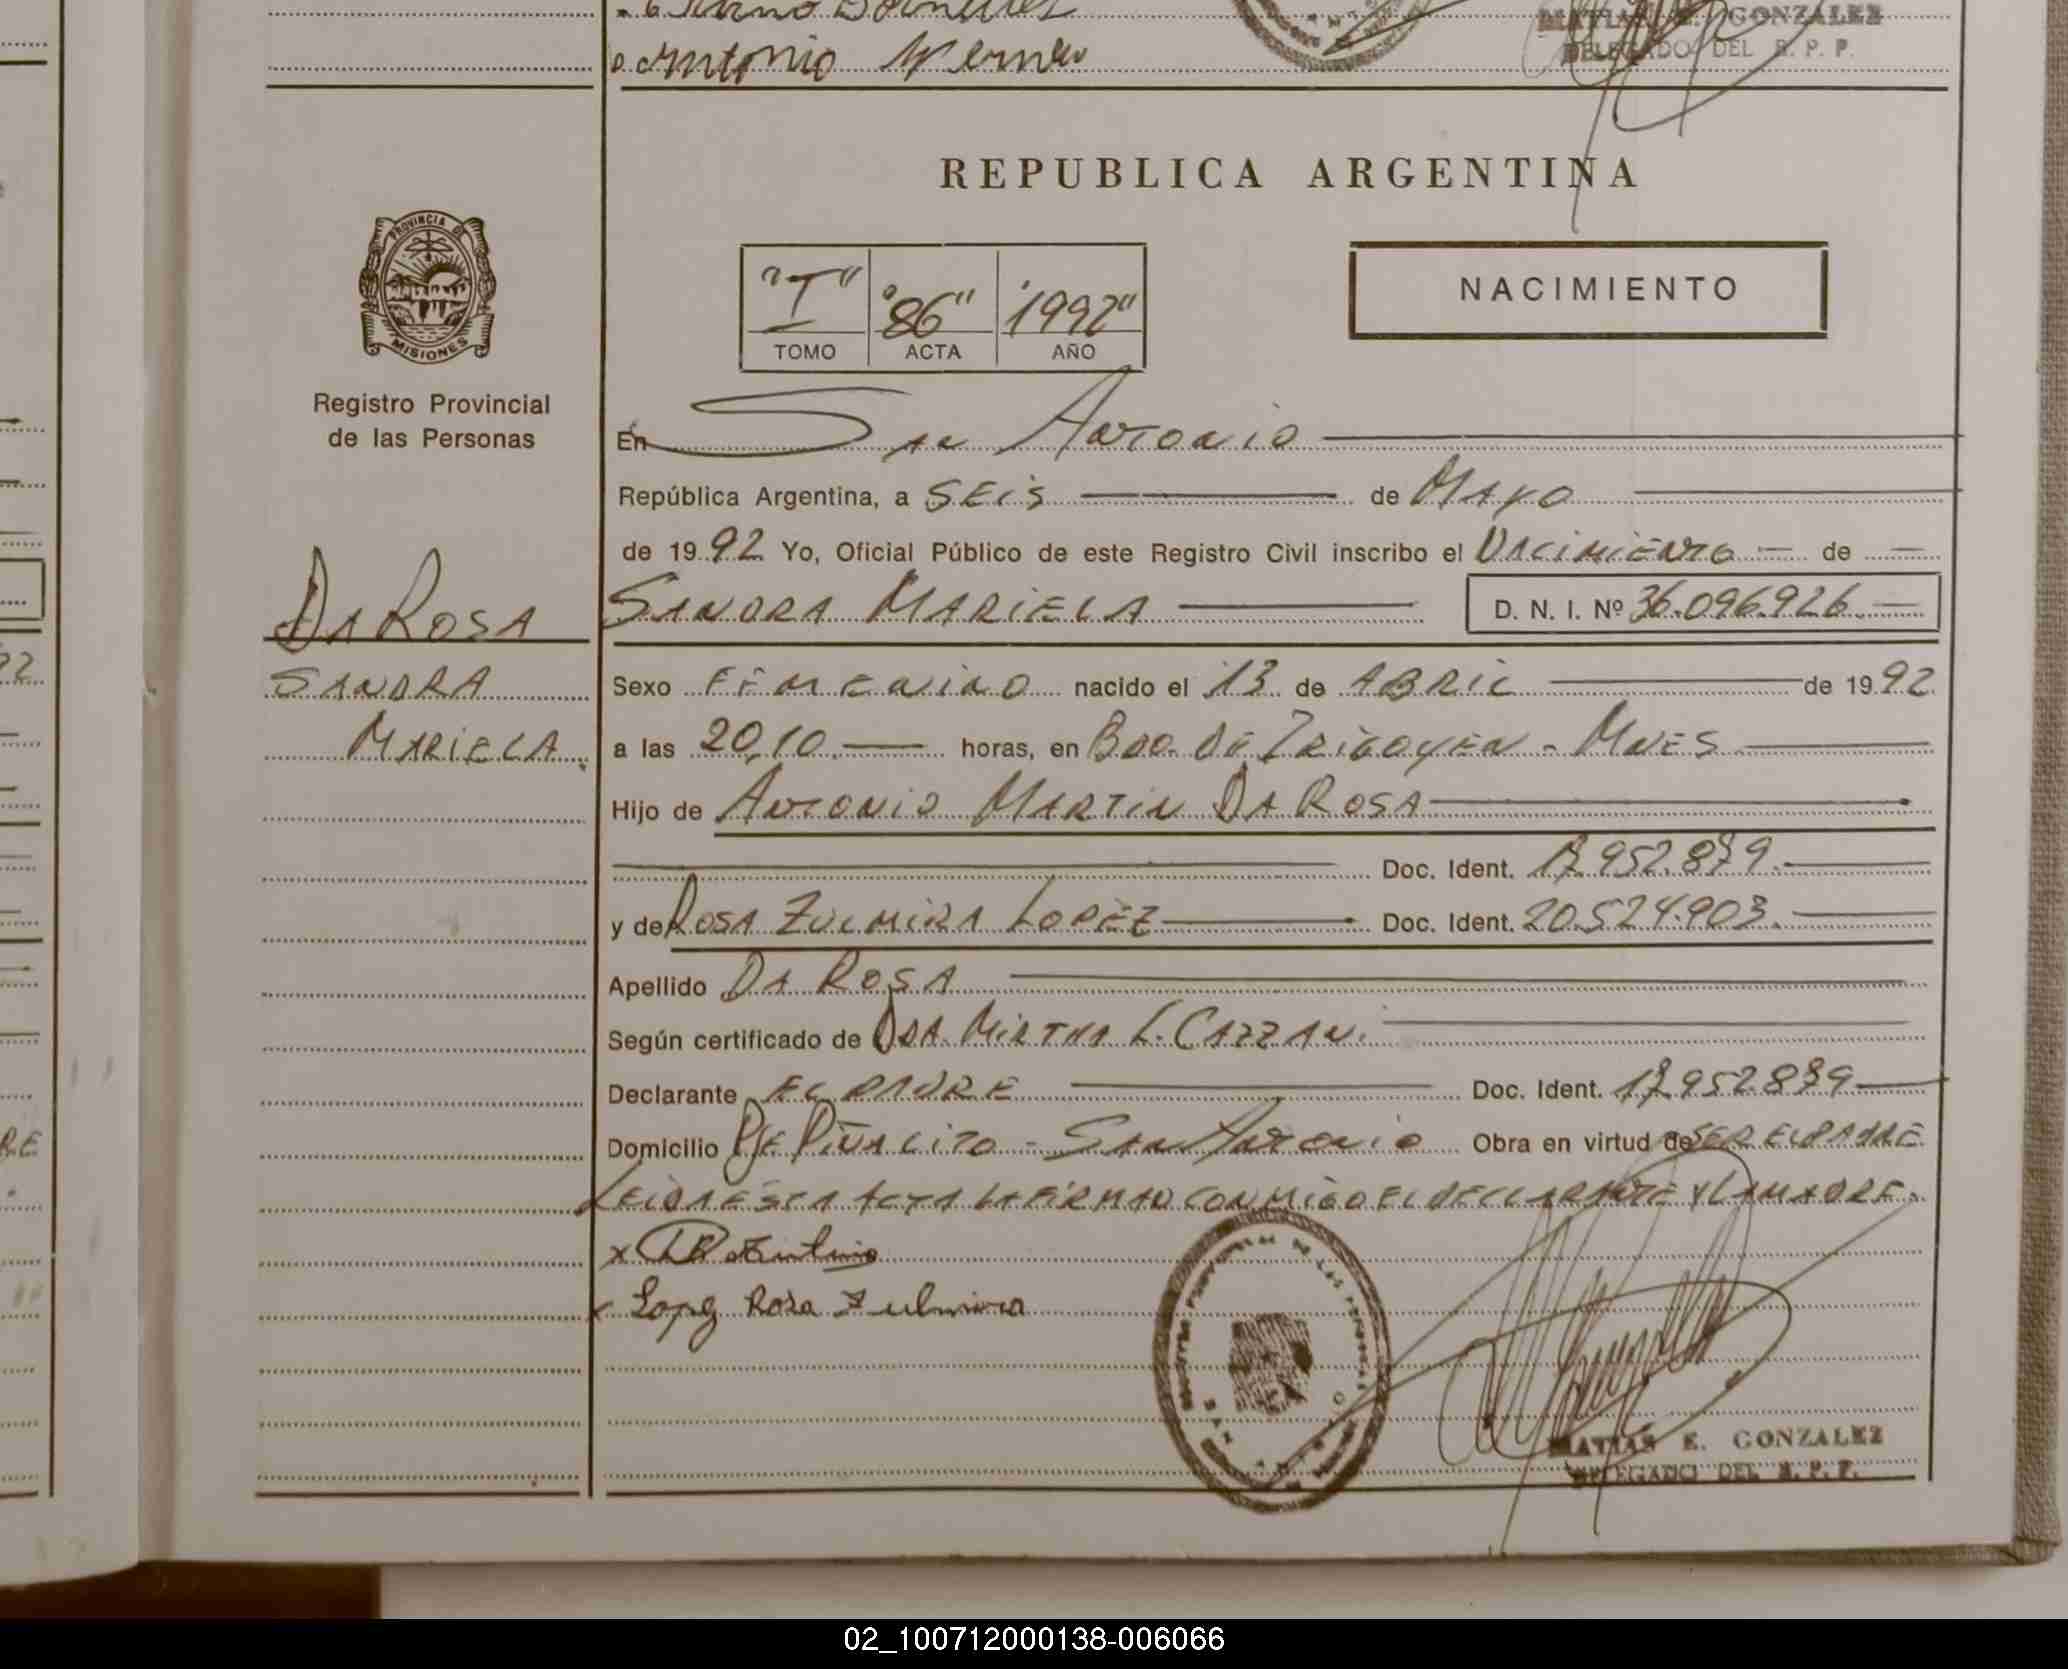 Antonio Werner
MATIAS E. GONZALEZ
DELEGADO DEL R. P. P.
REPUBLICA ARGENTINA
PROVINCIA DE
MISIONES
Registro Provincial
de las Personas
"I" "86" "1992"
TOMO ACTA AÑO
NACIMIENTO
En San Antonio
República Argentina, a SEIS de MAYO
de 1992 Yo, Oficial Público de este Registro Civil inscribo el NACIMIENTO de
DA ROSA
SANDRA
MARIELA
SANDRA MARIELA D. N. I. Nº 36.096.926
Sexo FEMENINO nacido el 13 de ABRIL de 1992
a las 20,10 horas, en BDO. DE IRIGOYEN - MNES
Hijo de ANTONIO MARTIN DA ROSA
Doc. Ident. 17.952.879.
y de ROSA ZULMIRA LOPEZ Doc. Ident. 20.524.903.
Apellido DA ROSA
Según certificado de DRA. MIRTHA L. CAZZAN.
Declarante EL PADRE Doc. Ident. 17.952.879
Domicilio PJE PIÑALITO - SAN ANTONIO Obra en virtud de SER EL PADRE
LEIDA ESTA ACTA LA FIRMAN CONMIGO EL DECLARANTE Y LA MADRE.
x DR Antonio
x Lopez Rosa Zulmira
MATIAS E. GONZALEZ
DELEGADO DEL R. P. P.
02_100712000138-006066